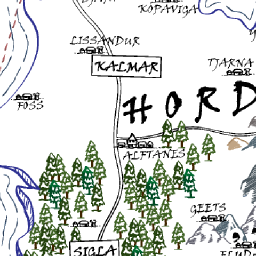 KOPAVIGA
LISSANDUR
KALMAR
TJARNA
FOSS
HORD
ALFTANES
GEETS
SIGLA